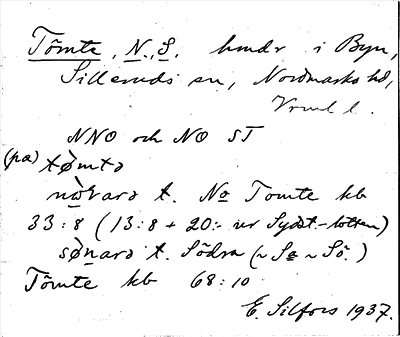 Tömte, N., S. hmdr i Byn,
Silleruds sn, Nordmarks hd,
Vrml l.
NNO och NO ST
(pa) tø̀mtə
nòrarə t. No Tomte kb
33:8 (13:8 + 20:- ur Sydöt.-lotten)
sø̀narə t. Södra (~ Sa ~ Sö.)
Tömte kb 68:10
E. Silfors 1937.